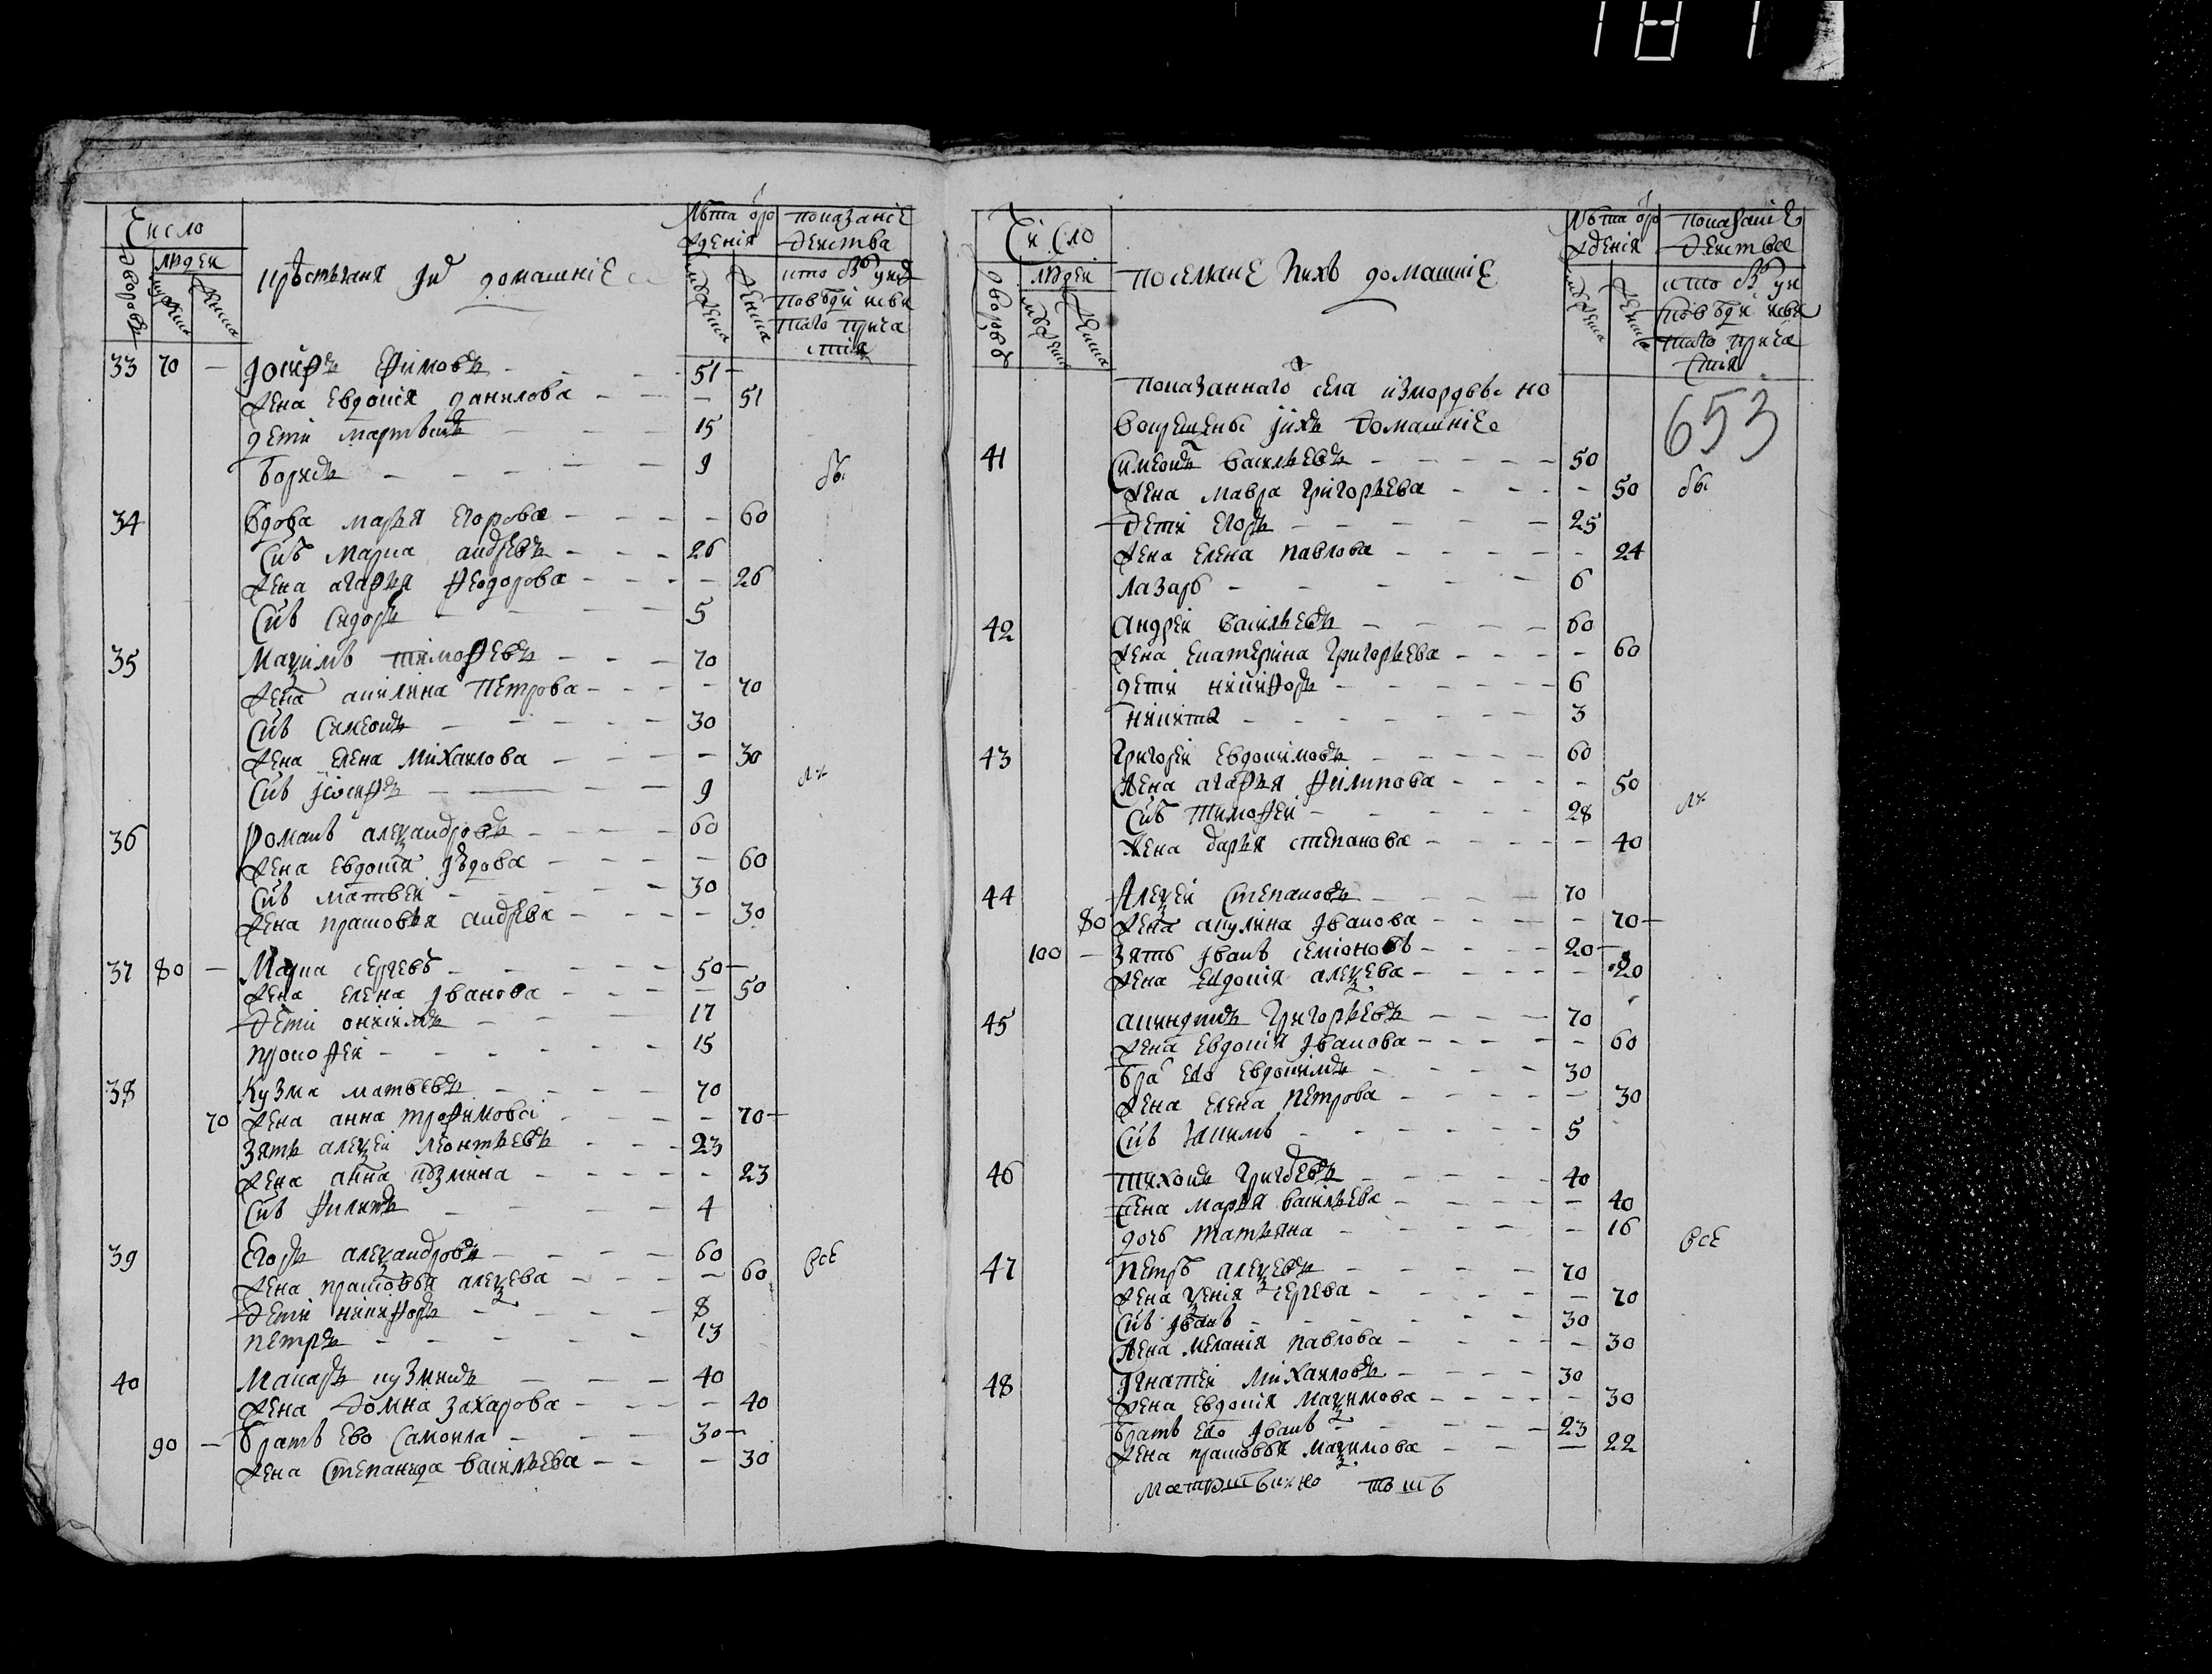 181
Число
дворовъ
людеи
мужеска
женска
крестьяня и домашніе
лѣта от рождения
мужеска
женска
показаніе
деиства
кто былъ у исповѣди и свя
таго прича
стія
33 70 — Иосифъ Фимовъ — 51
жена Евдокія данилова — — — 51
дети мартынъ — 15
борисъ — — — — — 9
бы
34 вдова марья Егорова — — — — 60
Сынъ марка андреевъ — — — 26
жена агафья Феодорова — — — — 26
Сынъ Сидоръ — — — 5
35 Маѯимъ тимофеевъ — — — 70
жена акилина Петрова — — — — 70
Сынъ Симеонъ — — — — 30
жена елена Михаилова — — — — 30
Сынъ Іосифъ — — — — 9
ли
36 Романъ алеѯандровъ — — — — 60
жена Евдокія — — — — 60
Сынъ матвеи — — — — 30
жена прасковья андреева — — — — 30
37 80 — Марка сергеевъ — — — — 50
жена елена Іванова — — — — 50
дети онисимъ — — — 17
прокофеи — — — — — 15
38 Кузма матвеевъ — — — — 70
70 жена анна трофимова — — — — 70
зять алеѯеи леонтьевъ — — — 23
жена анна кузмина — — — — — 23
Сынъ Филипъ — — — — 4
39 Егоръ алеѯандровъ — — — — 60
жена прасковья алеѯева — — — — 60
все
дети никифоръ — — — — 8
петръ — — — — — 13
40 Макаръ кузминъ — — — 40
жена домна захарова — — — — 40
90 — братъ ево Самоила — — — 30
жена Степанида васильева — — — 30
Число
дворовъ
людеи
мужеска
женска
поселяне и ихъ домашніе
лѣта от рождения
мужеска
женска
показаніе
деиства
кто былъ у исповѣди и свя
таго прича
стія
показаннаго села из мордвы но
вокрещены и ихъ домашніе
653
41 Симеонъ васильевъ — — — — — 50
жена мавра григорьева — — — — 50
бы
дети егоръ — — — — — 25
жена елена павлова — — — — — 24
лазарь — — — — — 6
42 андреи васильевъ — — — — 60
жена екатерина григорьева — — — — 60
дети никифоръ — — — — — 6
никита — — — — — — 3
43 григореи евдокимовъ — — — — 60
жена агафья филипова — — — — 50
Сынъ тимофеи — — — — — 28
ли
жена дарья степанова — — — — — 40
44 Алеѯеи Степановъ — — — — 70
80 жена акулина Іванова — — — — 70
100 — зять Іванъ семіоновъ — — — — 20
жена евдокія алеѯева — — — — — 20
45 акиндинъ григорьевъ — — — 70
жена евдокія Іванова — — — — — 60
братъ ево евдокимъ — — — — 30
жена елена петрова — — — — — 30
Сынъ — — — — — 5
46 тихонъ григорьевъ — — — — — 40
жена марья васильева — — — — — 40
дочь татьяна — — — — — 16
все
47 петръ алеѯевъ — — — — 70
жена ѯенія сергеева — — — — — 70
Сынъ Іванъ — — — — — — 30
жена меланія павлова — — — — — 30
48 Ігнатеи михаиловъ — — — — 30
жена евдокія маѯимова — — — — — 30
братъ ево Іванъ — — — — — 23
жена прасковья маѯимова — — — 22